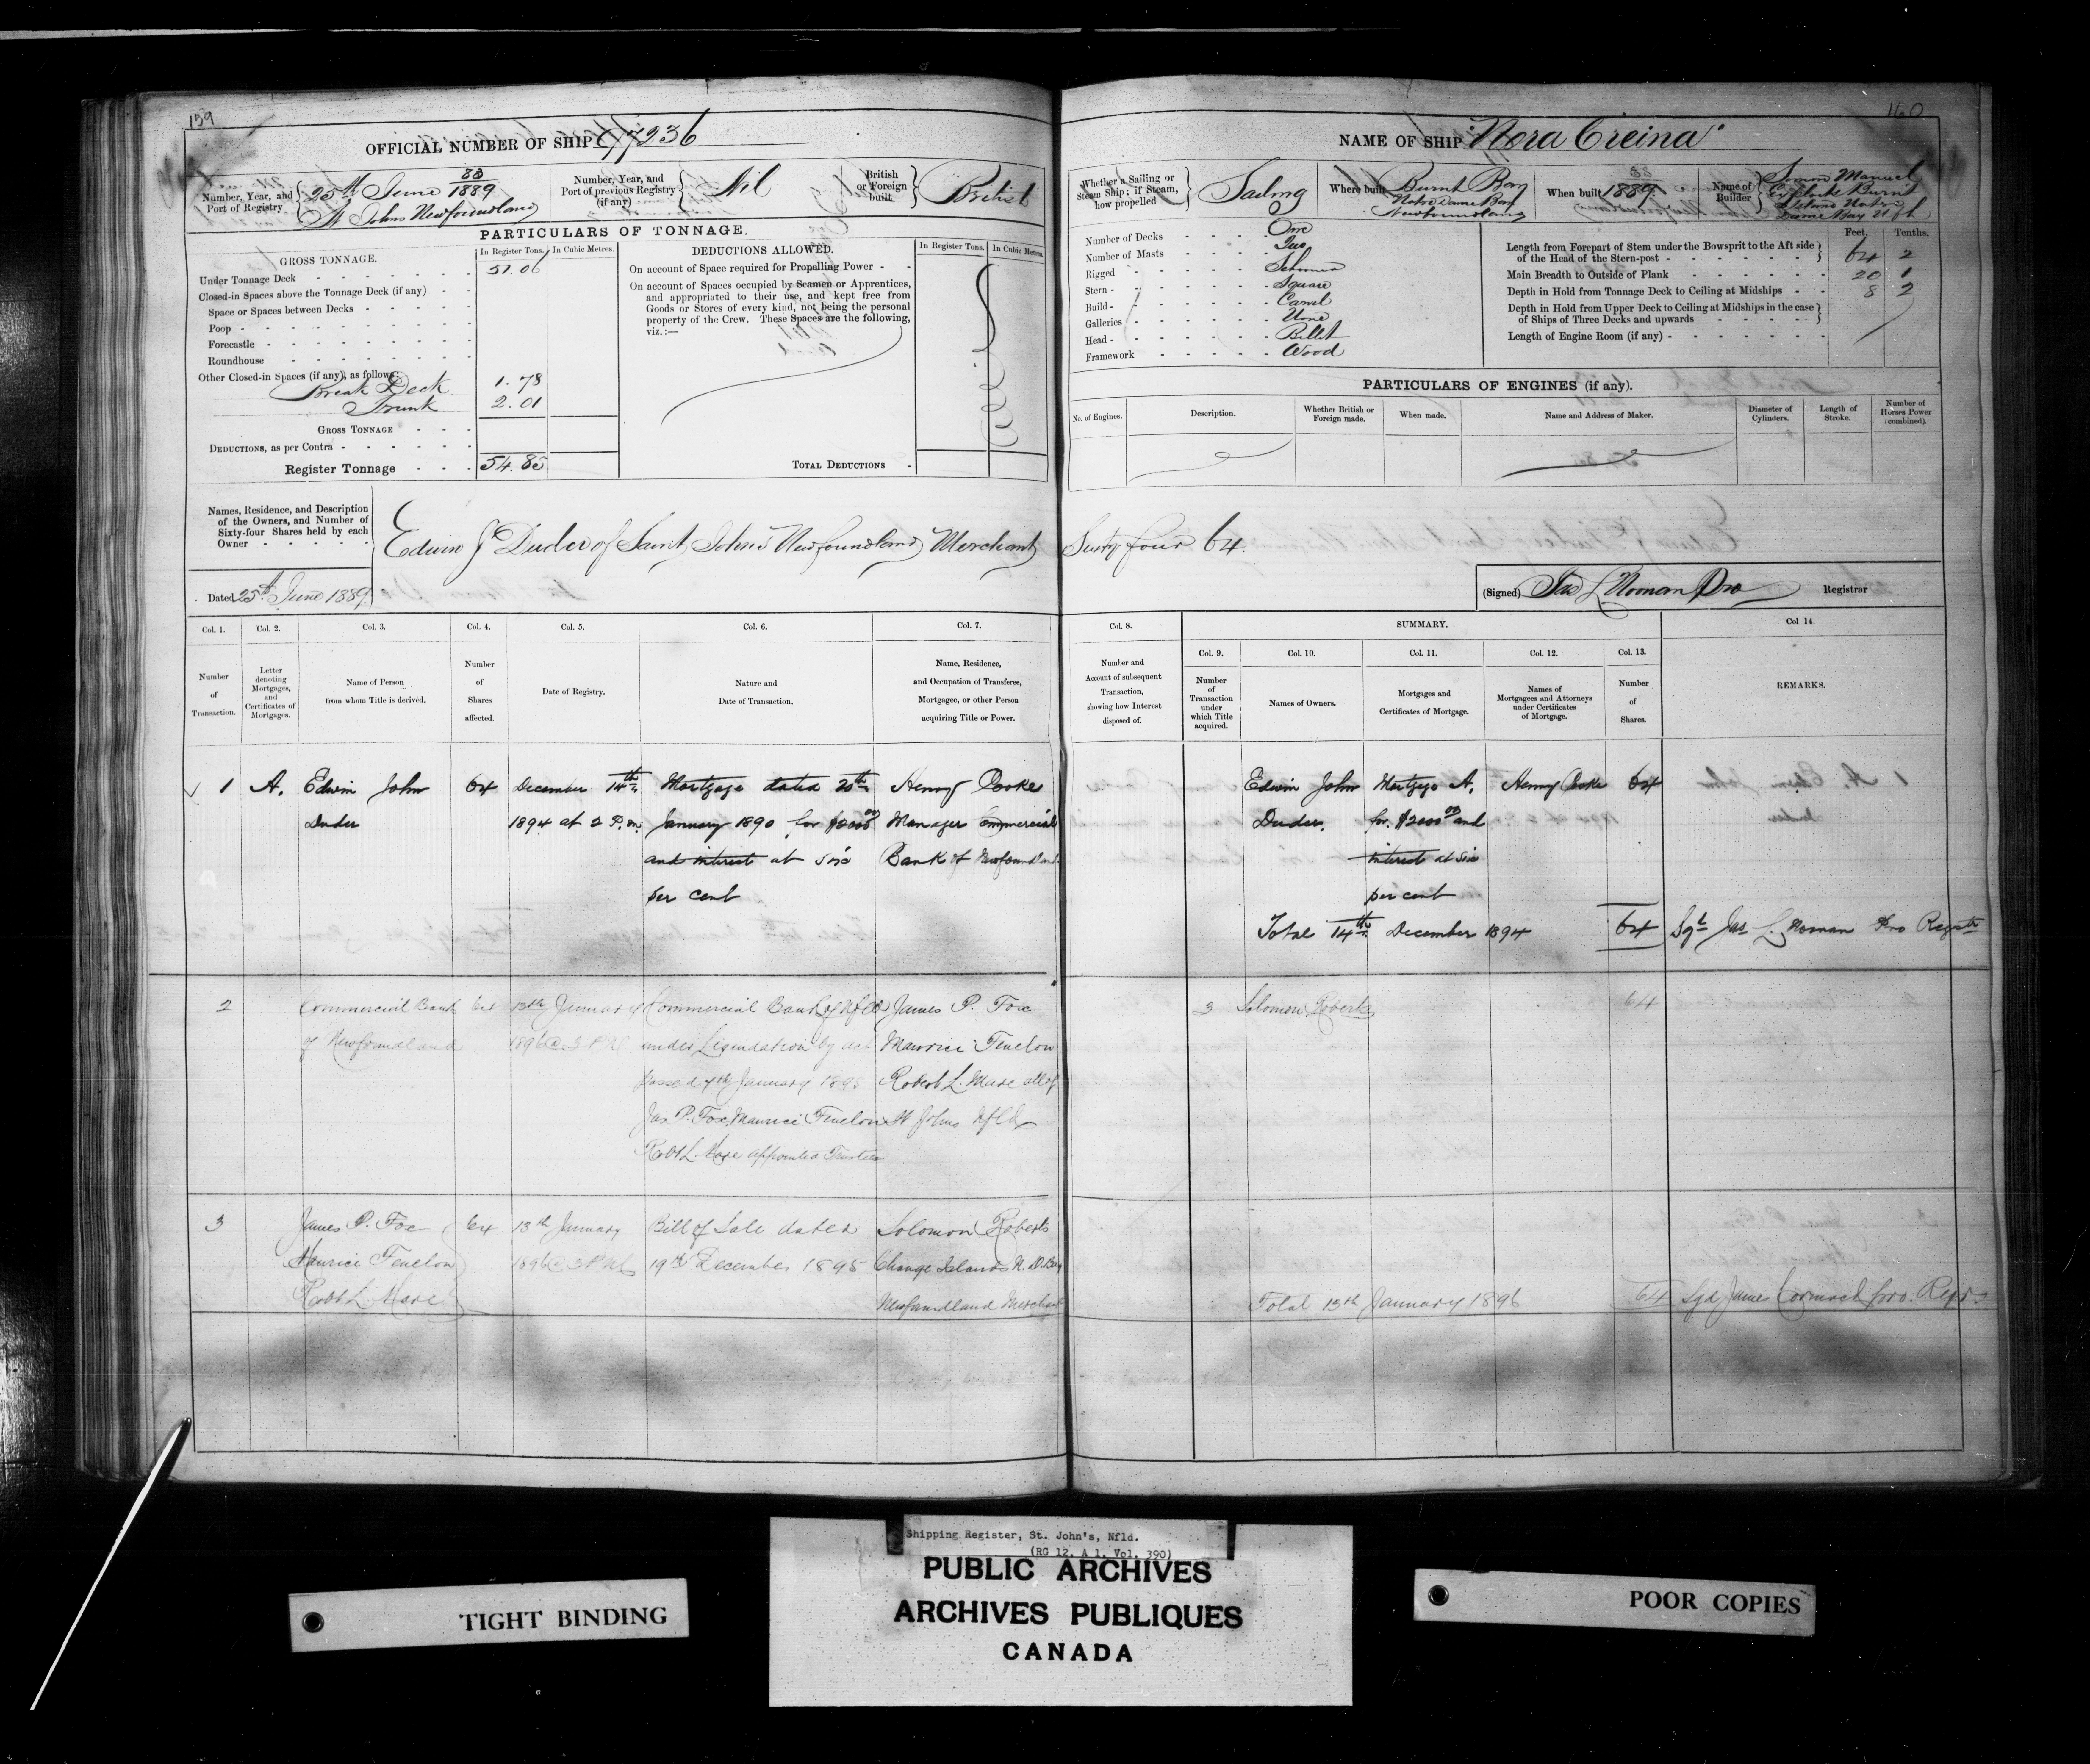 159
OFFICIAL NUMBER OF SHIP 97236
Number, Year, and Port of Registry
25th June 1889
St Johns Newfoundland
Number, Year, and Port of previous Registry (if any)
Nil
British or Foreign built
British
PARTICULARS OF TONNAGE.
GROSS TONNAGE.
In Register Tons.
In Cubic Metres.
DEDUCTIONS ALLOWED.
In Register Tons.
In Cubic Metres.
Under Tonnage Deck
51.06
Closed-in Spaces above the Tonnage Deck (if any)
Space or Spaces between Decks
Poop
Forecastle
Roundhouse
Other Closed-in Spaces (if any), as follows:
Break Deck 1.78
Trunk 2.01
GROSS TONNAGE
DEDUCTIONS, as per Contra
Register Tonnage 54.85
On account of Space required for Propelling Power
On account of Spaces occupied by Seamen or Apprentices,
and appropriated to their use, and kept free from
Goods or Stores of every kind, not being the personal
property of the Crew. These Spaces are the following,
viz.:—
TOTAL DEDUCTIONS
Names, Residence, and Description
of the Owners, and Number of
Sixty-four Shares held by each
Owner
Edwin J Duder of Saint John's Newfoundland Merchant
Dated 25th June 1889
160
NAME OF SHIP "Nora Creina"
Whether a Sailing or Steam Ship; if Steam, how propelled
Sailing
Where built
Burnt Bay
Notre Dame Bay
Newfoundland
When built
1889
Name of Builder
Simon Manuel
Exploits Burnt
Island Notre
Dame Bay Nfld
Number of Decks One
Number of Masts Two
Rigged Schooner
Stern Square
Build Carvel
Galleries None
Head Billet
Framework Wood
Feet. Tenths.
Length from Forepart of Stem under the Bowsprit to the Aft side
of the Head of the Stern-post 64 2
Main Breadth to Outside of Plank 20 1
Depth in Hold from Tonnage Deck to Ceiling at Midships 8 2
Depth in Hold from Upper Deck to Ceiling at Midships in the case
of Ships of Three Decks and upwards
Length of Engine Room (if any)
PARTICULARS OF ENGINES (if any).
No. of Engines.
Description.
Whether British or Foreign made.
When made.
Name and Address of Maker.
Diameter of Cylinders.
Length of Stroke.
Number of Horses Power (combined).
Sixty four 64.
(Signed) Jas L Noonan Pro Registrar
Col. 1. Col. 2. Col. 3. Col. 4. Col. 5. Col. 6. Col. 7.
Number of Transaction.
Letter denoting Mortgages, and Certificates of Mortgages.
Name of Person from whom Title is derived.
Number of Shares affected.
Date of Registry.
Nature and Date of Transaction.
Name, Residence, and Occupation of Transferee, Mortgagee, or other Person acquiring Title or Power.
Col. 8.
Number and Account of subsequent Transaction, showing how Interest disposed of.
SUMMARY.
Col. 9. Col. 10. Col. 11. Col. 12. Col. 13.
Number of Transaction under which Title acquired.
Names of Owners.
Mortgages and Certificates of Mortgage.
Names of Mortgagees and Attorneys under Certificates of Mortgage.
Number of Shares.
Col 14.
REMARKS.
1 A. Edwin John 64 December 14th Mortgage dated 20th Henry Cooke
Duder 1894 at 2 P.m. January 1890 for $2000 00 Manager Commercial
and interest at six Bank of Newfoundland
per cent
Edwin John Mortgage A. Henry Cooke 64
Duder. for $2000 00 and
interest at six
per cent
Total 14th December 1894 64 Sgd Jas L. Noonan Pro Registr
2 Commercial Bank 64 13th January Commercial Bank of Nfld James P. Fox
of Newfoundland 1896 @ 3 PM under Liquidation by act Maurice Fenelon
passed 7th January 1895 Robert L. Mare all of
Jas P. Fox, Maurice Fenelon St Johns Nfld
Robt L. Mare appointed Trustees
3 Solomon Roberts 64
3 James P. Fox 64 13th January Bill of Sale dated Solomon Roberts
Maurice Fenelon 1896 @ 3 PM 19th December 1895 Change Islands N. D. Bay
Robt L. Mare Newfoundland Merchant
Total 13th January 1896 64 Sgd James Cormack pro. Regr.
Shipping Register, St. John's, Nfld.
(RG 12, A 1, Vol. 390)
PUBLIC ARCHIVES
ARCHIVES PUBLIQUES
CANADA
TIGHT BINDING
POOR COPIES